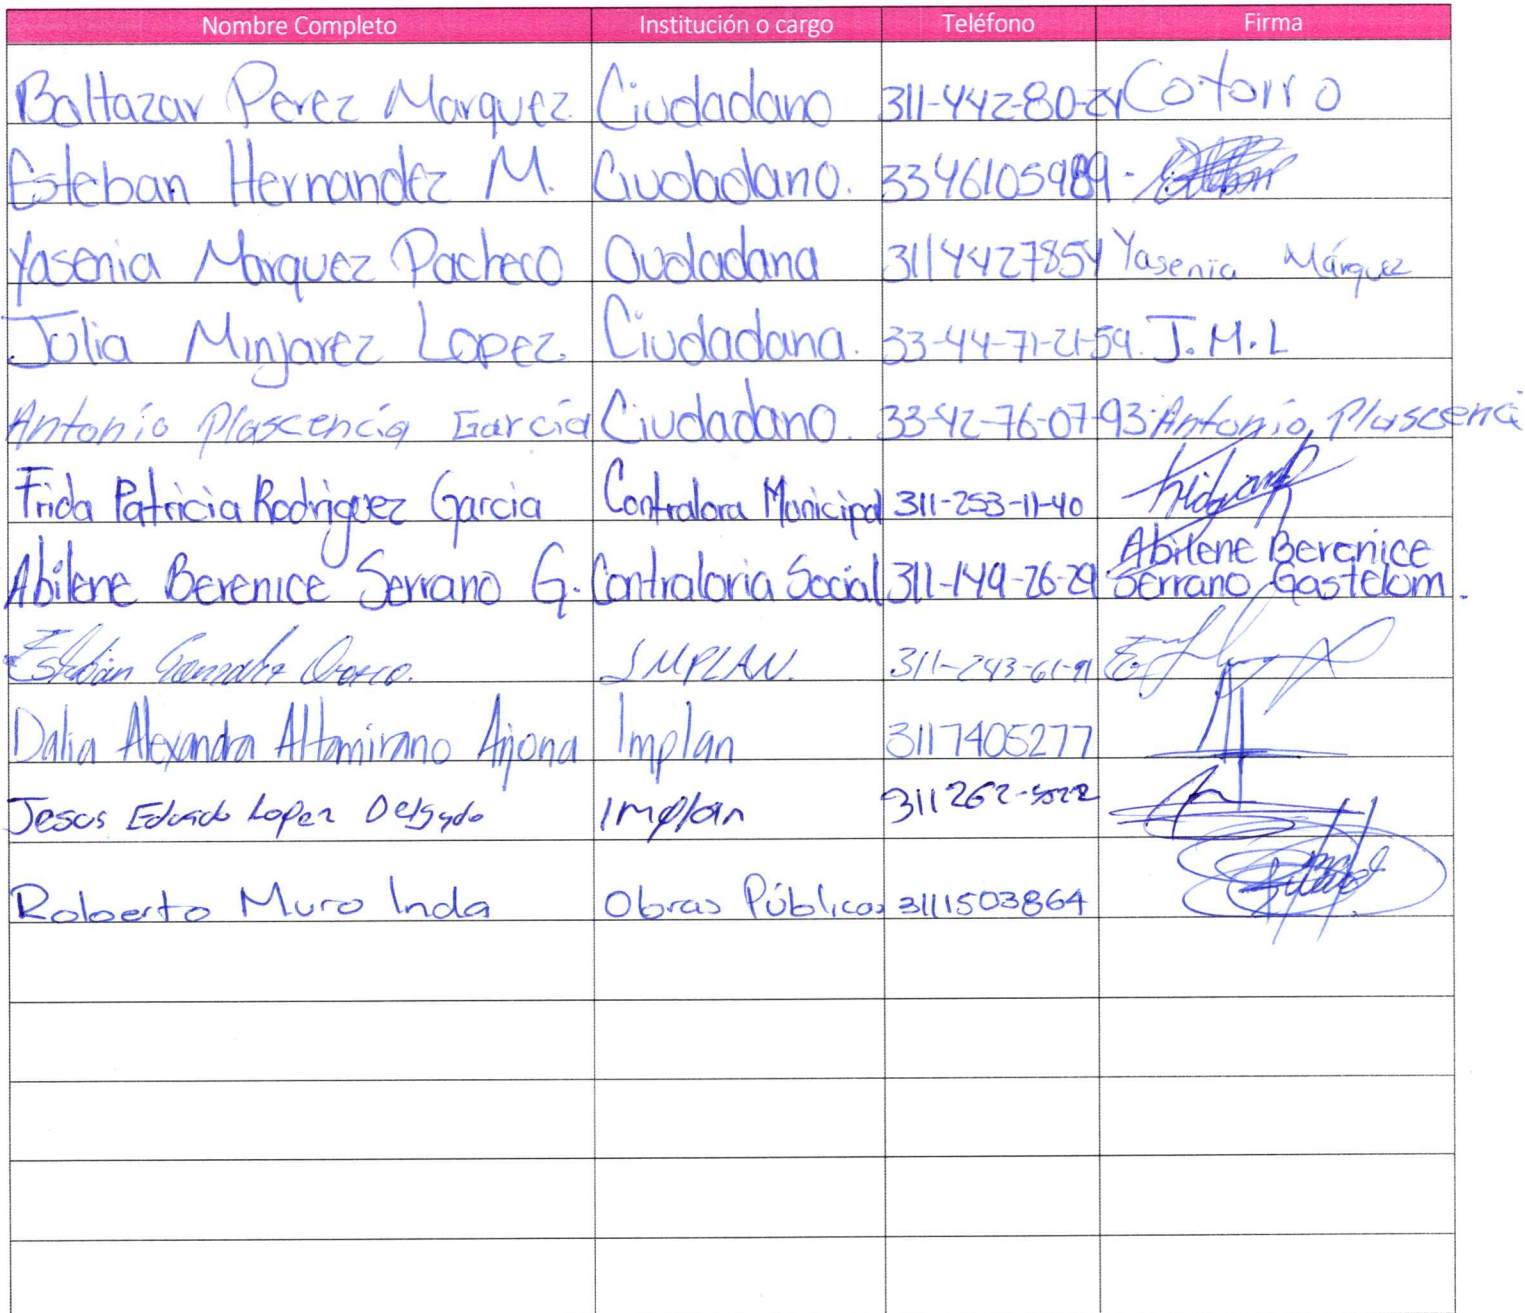 Nombre Completo Institución o cargo Teléfono Firma
Baltazar Perez Marquez. Ciudadano 311-442-80-24 Cotorro
Esteban Hernandez M. Ciudadano. 3346105989-
Yasenia Marquez Pacheco Ciudadana 3114427854 Yasenia Márquez
Julia Minjarez Lopez. Ciudadana. 33-44-71-21-59. J.M.L
Antonio Plascencia García Ciudadano. 33-42-76-07-93. Antonio Plascencia
Frida Patricia Rodriguez Garcia Contralora Municipal 311-253-11-40
Abilene Berenice Serrano G. Contraloria Social 311-149-26-29 Abilene Berenice
Serrano Gastelum.
Esteban Gonzalez Orozco. IMPLAN. 311-243-61-91
Dalia Alexandra Altamirano Arjona Implan 3117405277
Jesus Eduardo Lopez Delgado Implan 311262-5022
Roberto Muro Inda Obras Públicas 3111503864